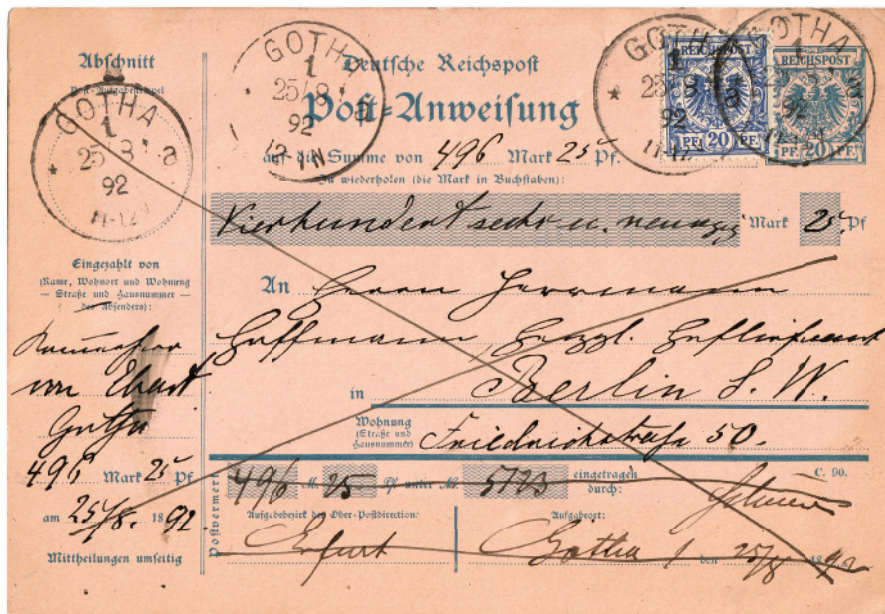 Abschnitt
Post-Aufgabestempel
GOTHA
1
25/8
a
92
11-12N
Eingezahlt von
(Name, Wohnort und Wohnung
— Straße und Hausnummer —
des Absenders):
Kammerherr
von Ebart
Gotha
496 Mark 25 Pf
am 25/8. 1892
Mittheilungen umseitig
GOTHA
1
25/8
a
92
12 1N
Deutsche Reichspost
Post-Anweisung
auf die Summe von 496 Mark 25 Pf.
Zu wiederholen (die Mark in Buchstaben):
Vierhundert sechs u. neunzig Mark 25 Pf
An Herrn Herrmann
Hoffmann Herzgl. Hoflieferant
in Berlin S. W.
Wohnung
(Straße und
Hausnummer)
Friedrichstraße 50.
GOTHA
1
25/8
a
92
11-12
REICHSPOST
PF. 20 PF.
GOTHA
1
a
92
REICHSPOST
PF. 20 PF.
Postvermerk
496 M. 25 Pf. unter Nr. 5723 eingetragen
durch:
C. 90.
Aufgabebezirk der Ober-Postdirection:
Erfurt
Aufgabeort:
Gotha 1 den 25/8 1892